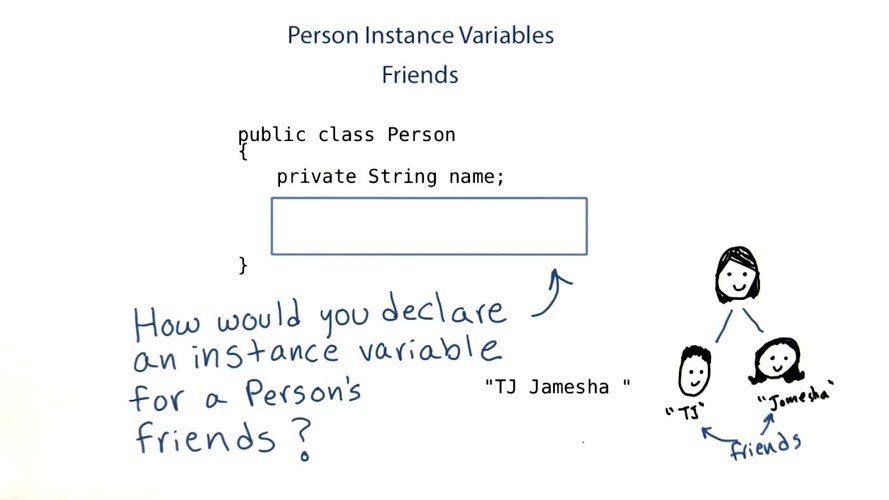 Person Instance Variables
Friends
public class Person
{
private String name;
}
How would you declare
an instance variable
for a Person's
friends?
"TJ Jamesha "
"TJ"
"Jamesha"
friends